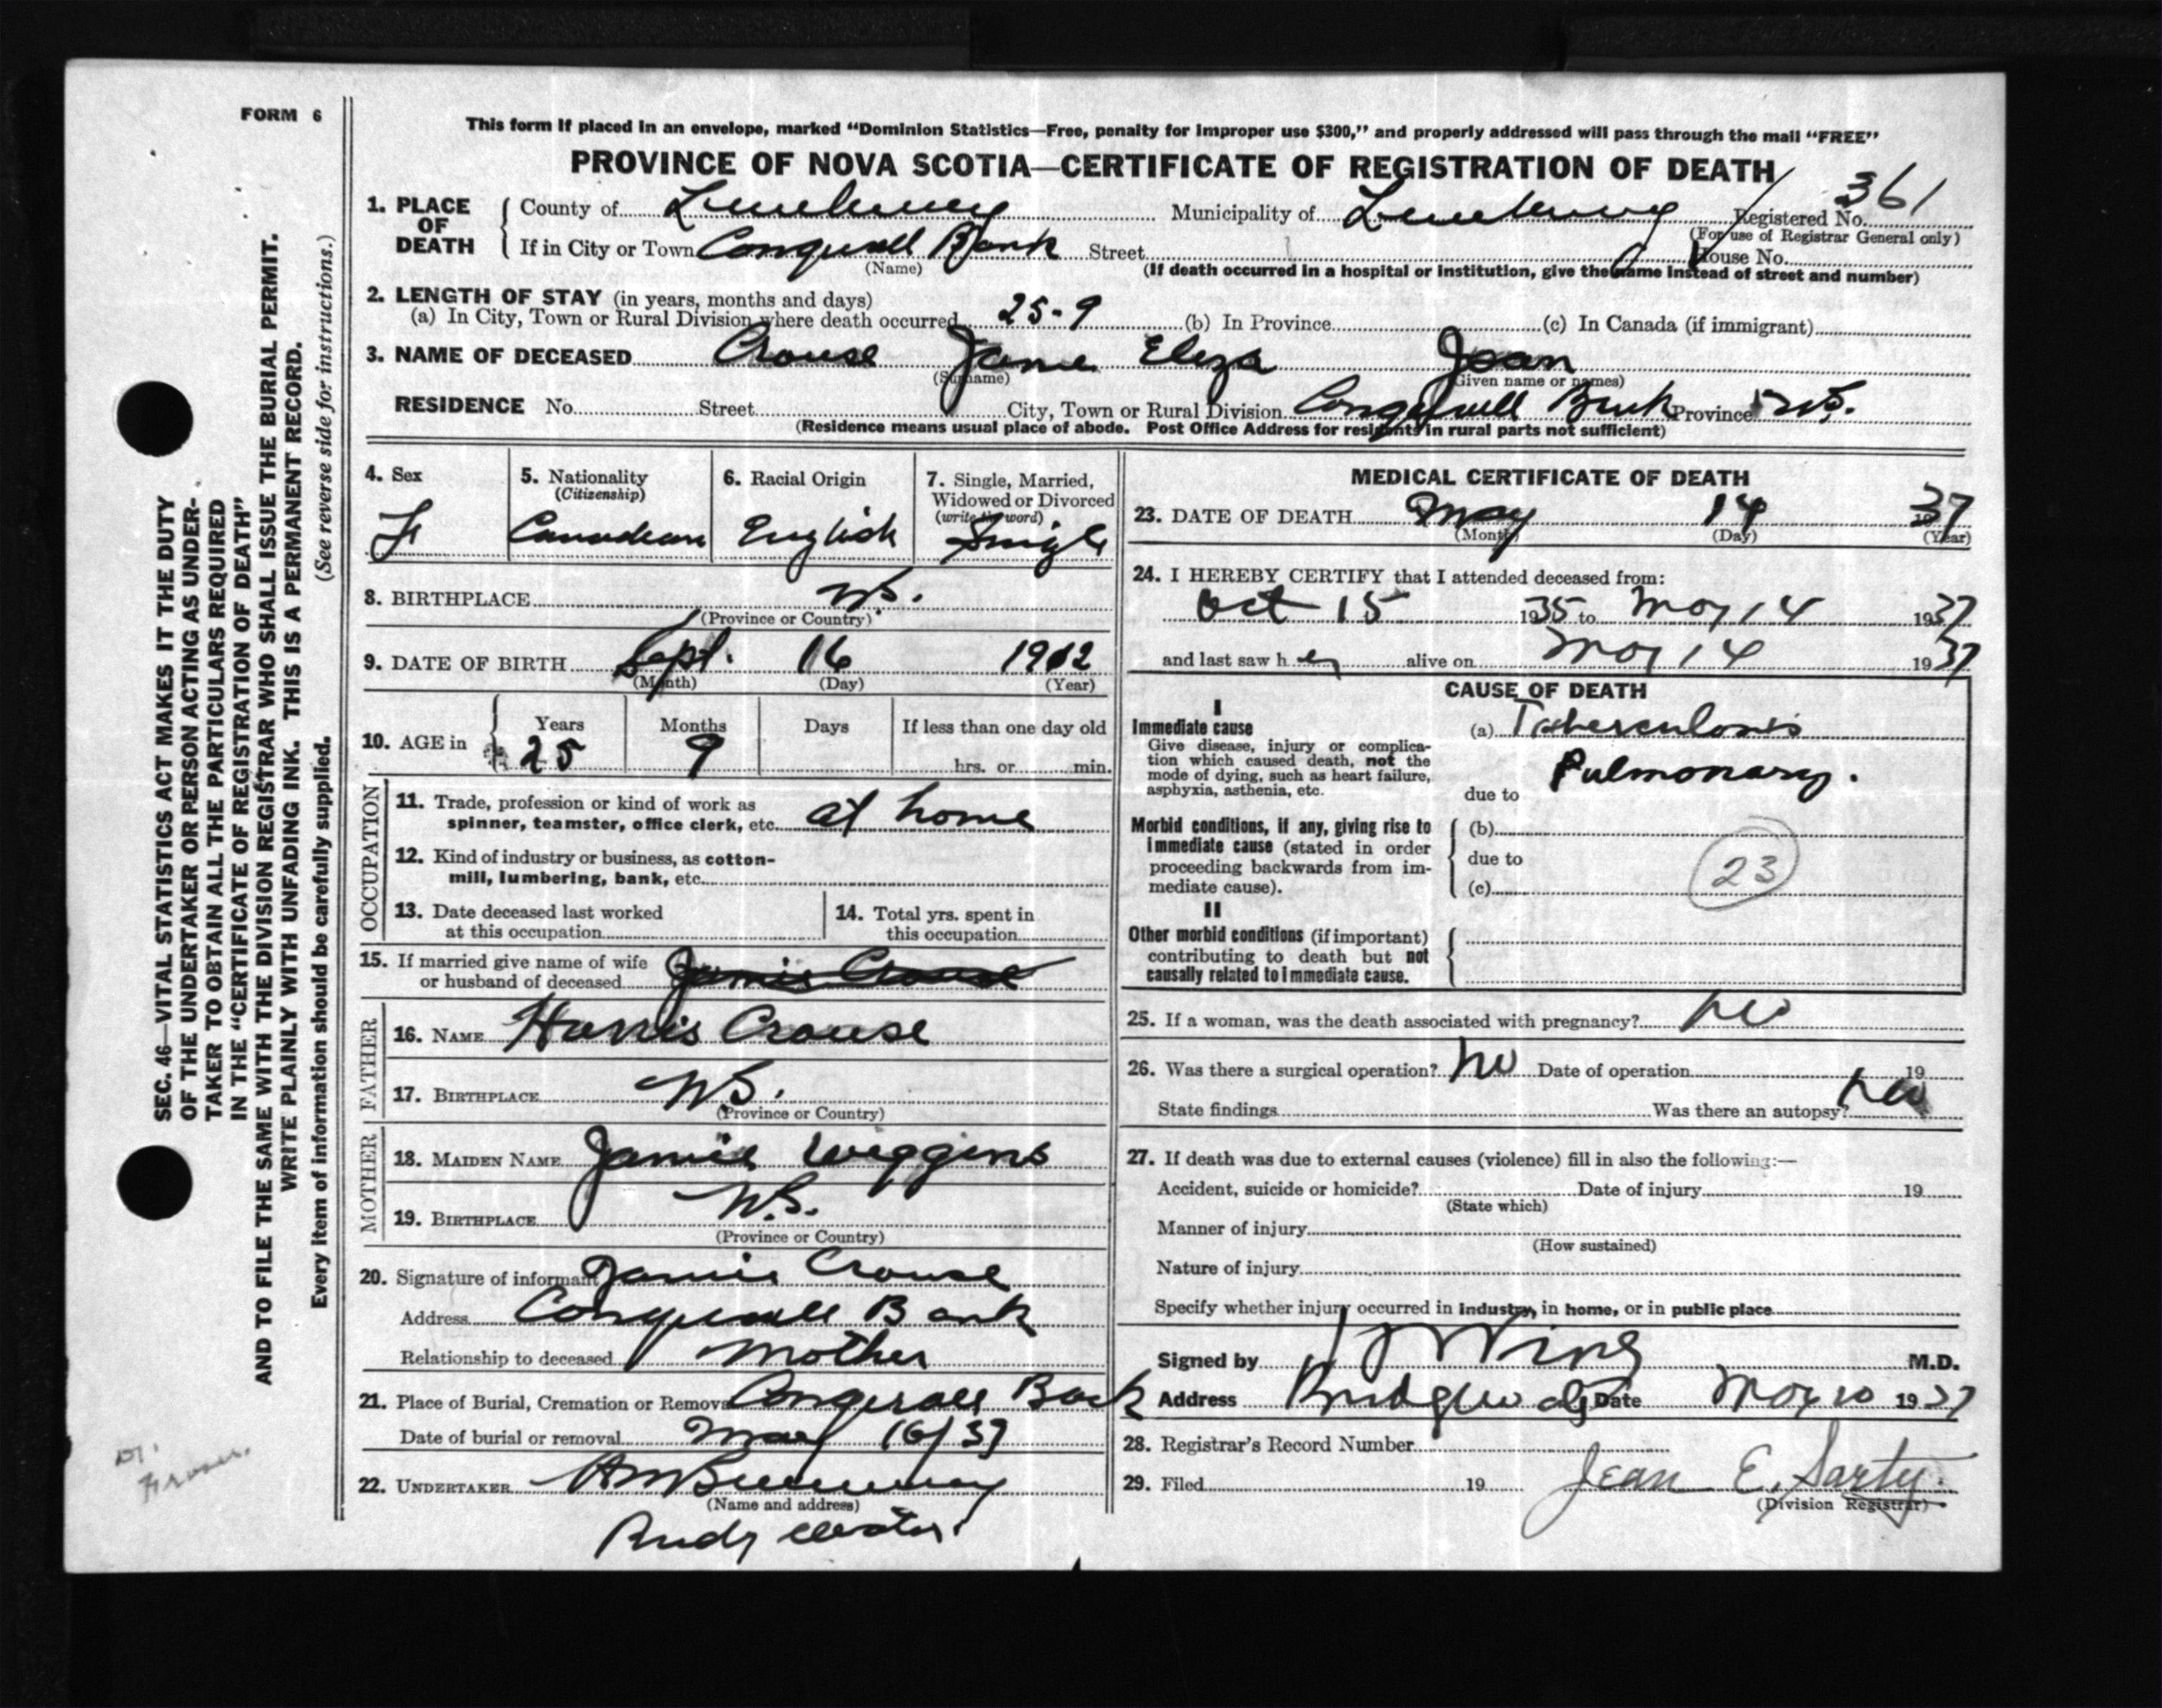 FORM 6
This form if placed in an envelope, marked "Dominion Statistics—Free, penalty for improper use $300," and properly addressed will pass through the mail "FREE"
PROVINCE OF NOVA SCOTIA—CERTIFICATE OF REGISTRATION OF DEATH
1. PLACE OF DEATH County of Lunenburg Municipality of Lunenburg Registered No. 361
(For use of Registrar General only)
If in City or Town Conquerall Bank Street House No.
(Name) (If death occurred in a hospital or institution, give the name instead of street and number)
2. LENGTH OF STAY (in years, months and days)
(a) In City, Town or Rural Division where death occurred 25-9 (b) In Province (c) In Canada (if immigrant)
3. NAME OF DECEASED Crouse Jane Eliza Jean
(Surname) (Given name or names)
RESIDENCE No. Street City, Town or Rural Division Conquerall Bank Province N.S.
(Residence means usual place of abode. Post Office Address for residents in rural parts not sufficient)
4. Sex F
5. Nationality (Citizenship) Canadian
6. Racial Origin English
7. Single, Married, Widowed or Divorced (write the word) Single
8. BIRTHPLACE N.S.
(Province or Country)
9. DATE OF BIRTH Sept. 16 1912
(Month) (Day) (Year)
10. AGE in Years 25 Months 9 Days If less than one day old hrs. or min.
OCCUPATION
11. Trade, profession or kind of work as spinner, teamster, office clerk, etc. at home
12. Kind of industry or business, as cotton-mill, lumbering, bank, etc.
13. Date deceased last worked at this occupation
14. Total yrs. spent in this occupation
15. If married give name of wife or husband of deceased Jamie Crouse
FATHER
16. NAME Harris Crouse
17. BIRTHPLACE N.S.
(Province or Country)
MOTHER
18. MAIDEN NAME Jamie Wiggins
19. BIRTHPLACE N.S.
(Province or Country)
20. Signature of informant Jamie Crouse
Address Conquerall Bank
Relationship to deceased Mother
21. Place of Burial, Cremation or Removal Conquerall Bank
Date of burial or removal May 16/37
22. UNDERTAKER
(Name and address)
MEDICAL CERTIFICATE OF DEATH
23. DATE OF DEATH May 14 1937
(Month) (Day) (Year)
24. I HEREBY CERTIFY that I attended deceased from:
Oct 15 1935 to May 14 1937
and last saw her alive on May 14 1937
CAUSE OF DEATH
I
Immediate cause
Give disease, injury or complication which caused death, not the mode of dying, such as heart failure, asphyxia, asthenia, etc.
(a) Tuberculosis
Pulmonary.
due to
Morbid conditions, if any, giving rise to immediate cause (stated in order proceeding backwards from immediate cause).
(b)
due to
(c)
23
II
Other morbid conditions (if important) contributing to death but not causally related to immediate cause.
25. If a woman, was the death associated with pregnancy? no
26. Was there a surgical operation? no Date of operation 19
State findings Was there an autopsy? no
27. If death was due to external causes (violence) fill in also the following:—
Accident, suicide or homicide? Date of injury 19
(State which)
Manner of injury
(How sustained)
Nature of injury
Specify whether injury occurred in industry, in home, or in public place
Signed by M.D.
Address Bridgewater Date May 20 1937
28. Registrar's Record Number
29. Filed 19 Jean E. Sarty
(Division Registrar)
SEC. 46—VITAL STATISTICS ACT MAKES IT THE DUTY
OF THE UNDERTAKER OR PERSON ACTING AS UNDER-
TAKER TO OBTAIN ALL THE PARTICULARS REQUIRED
IN THE "CERTIFICATE OF REGISTRATION OF DEATH"
AND TO FILE THE SAME WITH THE DIVISION REGISTRAR WHO SHALL ISSUE THE BURIAL PERMIT.
WRITE PLAINLY WITH UNFADING INK. THIS IS A PERMANENT RECORD.
Every item of information should be carefully supplied. (See reverse side for instructions.)